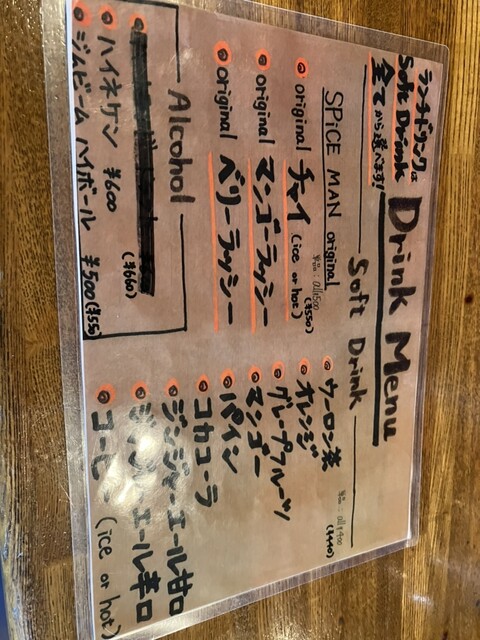 ランチドリンクは
Soft Drink
全てから選べます!
Drink Menu
Soft Drink
SPICE MAN original
単品:all ¥500
(¥550)
original チャイ (ice or hot)
original マンゴーラッシー
original ベリーラッシー
Alcohol
(¥660)
ハイネケン ¥600
ジムビーム ハイボール ¥500 (¥550)
単品:all ¥400
(¥440)
ウーロン茶
オレンジ
グレープフルーツ
マンゴー
パイン
コカコーラ
ジンジャーエール甘口
ジンジャーエール辛口
コーヒー (ice or hot)